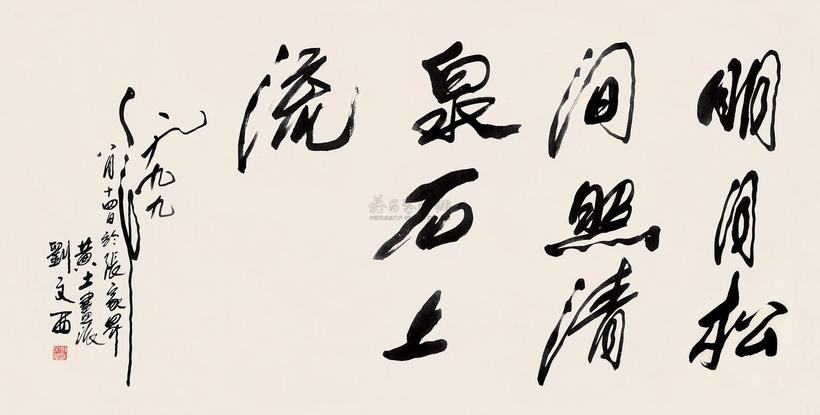 明月松
间照清
泉石上
流
一九九九
年
八月十四日於張家界
黄土畫派
劉文西